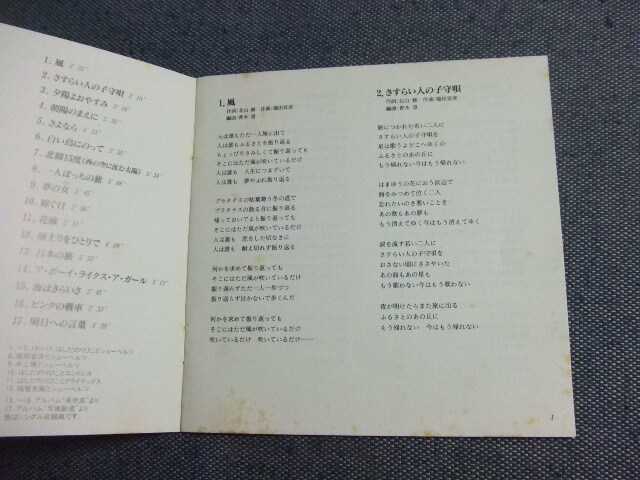 1. 風 3'15"
2. さすらい人の子守唄
3. 夕陽よおやすみ
4. 朝陽のまえに
5. さよなら
6. 白い鳥にのって
7. 北緯15度(西の空に沈む太陽)
8. 一人ぼっちの旅
9. 夢の女
10. 嫁ぐ日
11. 花嫁
12. 雨上りをひとりで
13. 日本の旅
14. ア・ボーイ・ライクス・ア・ガール
15. 海はきらいさ
16. ピンクの戦車
17. 明日への言葉
1. 風
作詞:北山 修 作曲:端田宣彦
編曲:青木 望
人は誰もただ一人旅に出て
人は誰もふるさとを振り返る
ちょっぴりさみしくて振り返っても
そこにはただ風が吹いているだけ
人は誰も 人生につまずいて
人は誰も 夢やぶれ振り返る
プラタナスの枯葉舞う冬の道で
プラタナスの散る音に振り返る
帰っておいでよと振り返っても
そこにはただ風が吹いているだけ
人は誰も 恋をした切なさに
人は誰も 耐え切れず振り返る
何かを求めて振り返っても
そこにはただ風が吹いているだけ
振り返らずただ一人一歩づつ
振り返らず泣かないで歩くんだ
何かを求めて振り返っても
そこにはただ風が吹いているだけ
吹いているだけ 吹いているだけ……
2. さすらい人の子守唄
作詞:北山 修 作曲:端田宣彦
編曲:青木 望
旅につかれた若い二人に
さすらい人の子守唄を
星は歌うよどこへゆくの
ふるさとのあの丘に
もう帰れない今はもう帰れない
はまゆうの花におう浜辺で
雨をみつめて泣く二人
忘れたいのさ悪いことを
あの歌もあの夢も
もう消えてゆく今はもう消えてゆく
涙を流す若い二人に
さすらい人の子守唄を
おさない頃にささやいた
あの海もあの星も
もう歌わない今はもう歌わない
夜が明けたらまた旅に出る
ふるさとのあの丘に
もう帰れない 今はもう帰れない
1